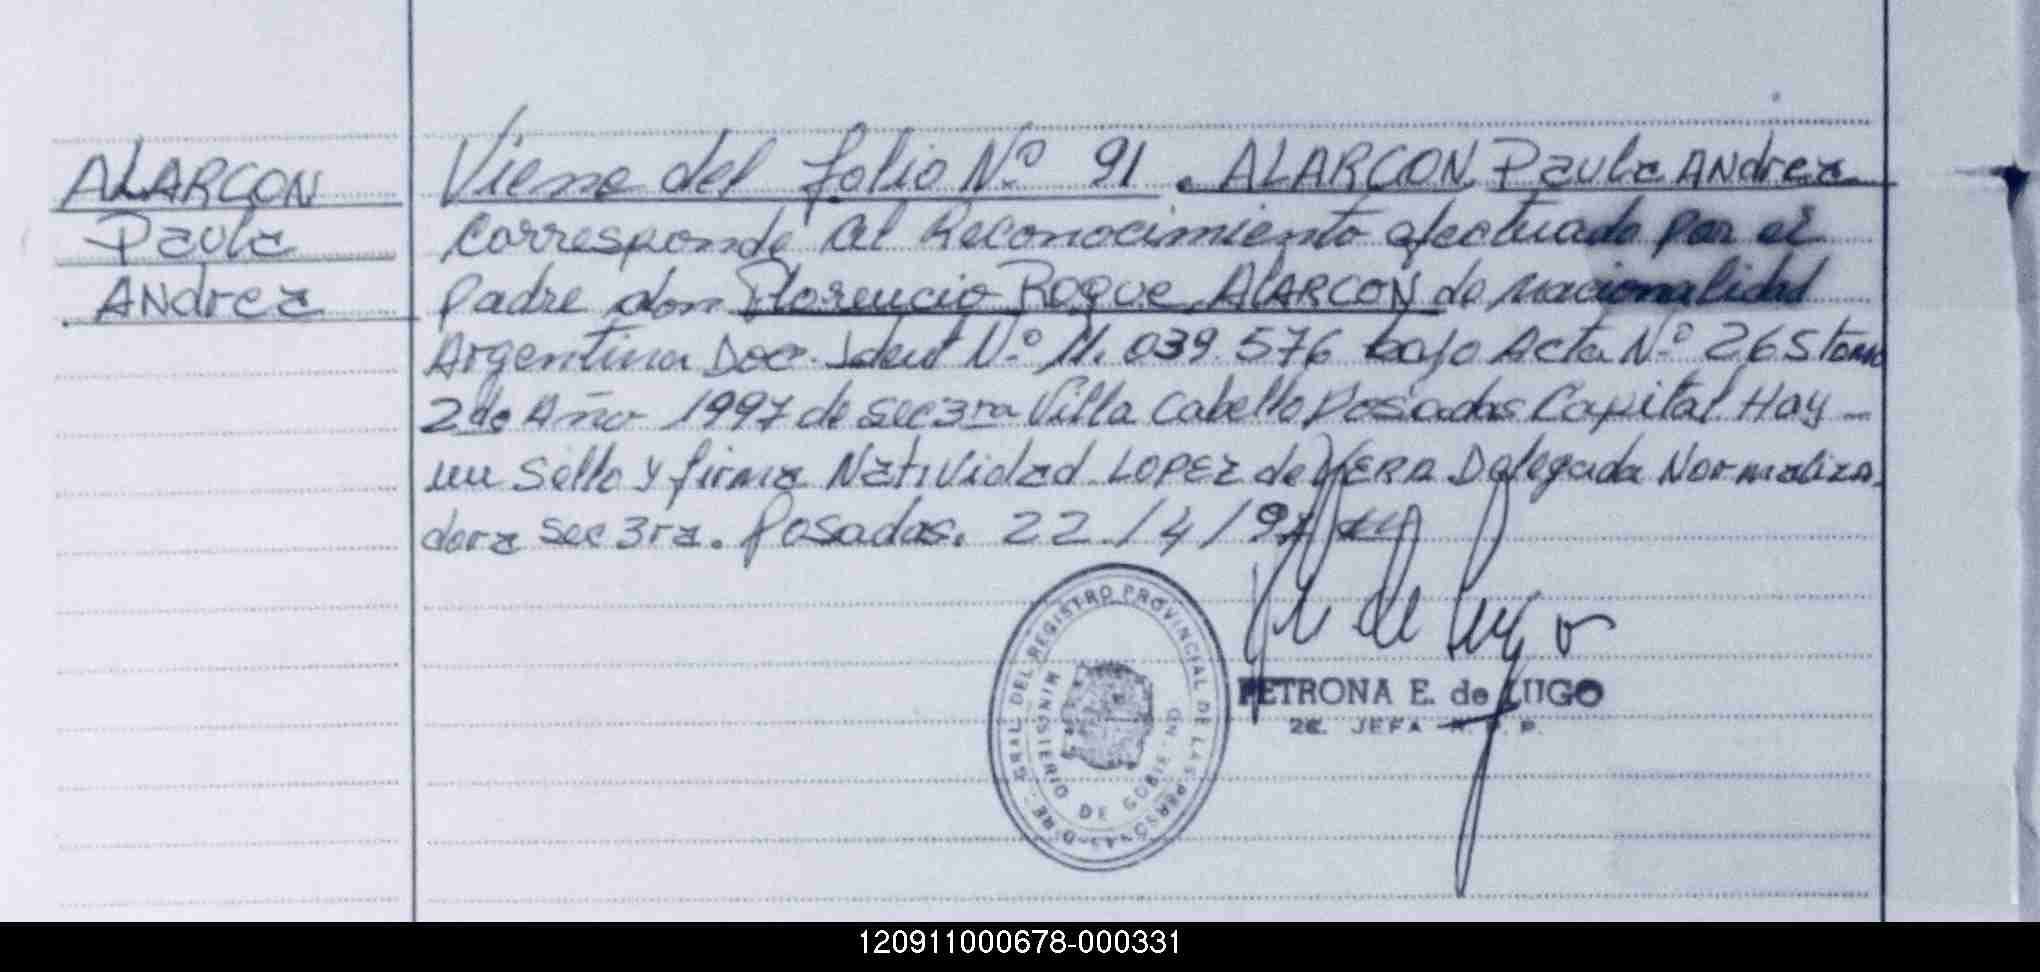 ALARCON
Paula
Andrea
Viene del folio Nº 91. ALARCON, Paula Andrea
corresponde al Reconocimiento efectuado por el
padre don Florencio Roque ALARCON de nacionalidad
Argentina Doc. Ident Nº 11.039.576 bajo Acta Nº 265 tomo
2do Año 1997 de sec 3ra Villa Cabello Posadas Capital Hay
un sello y firma Natividad LOPEZ de VERA Delegada Normaliza-
dora sec 3ra. Posadas. 22/4/97
de Lugo
PETRONA E. de LUGO
2E. JEFA R. P. P.
GRAL DEL REGISTRO PROVINCIAL DE LAS PERSONAS
MINISTERIO DE GOBIERNO
120911000678-000331